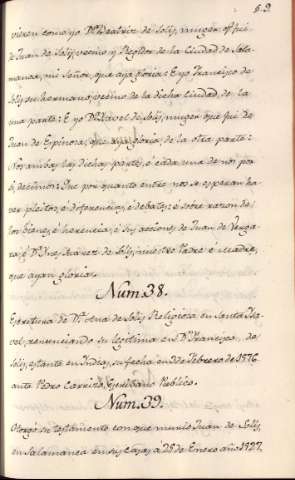 53
vieren como yo Dª Beatriz de Solis, muger q̃ fui
de Juan de Solis, vecino y Regidor de la Ciudad de Sala
manca, mi Señor, que aya gloria: E yo Francisco de
Solis su hermano, vecino de la dicha Ciudad, de la
una parte: E yo Dª Isavel de Solis, muger que fui de
Juan de Espinosa, que aya gloria, de la otra parte:
Nos ambas las dichas partes, é cada una de nos por
ó, decimos: Que por quanto entre nos se esperan ha
ver pleitos, é diferencias, é debates: é sobre razon de
los bienes, é herencia, é sus acciones de Juan de Verga
ra, é Dª Ines Suarez de Solis, nuestro Padre é Madre,
que ayan gloria.
Num. 38.
Escritura de Dª Elena de Solis Religiosa en Santa Isa
vel, renunciando su legitima en Dⁿ Francisco de
Solis, estante en Indias, su fecha en 2 de Febrero de 1576
ante Pedro Carrizo, Escribano Publico.
Num. 39.
Otorgó su testamento con que murió Juan de Solis,
en Salamanca en sus Casas a 25 de Enero año 1527.